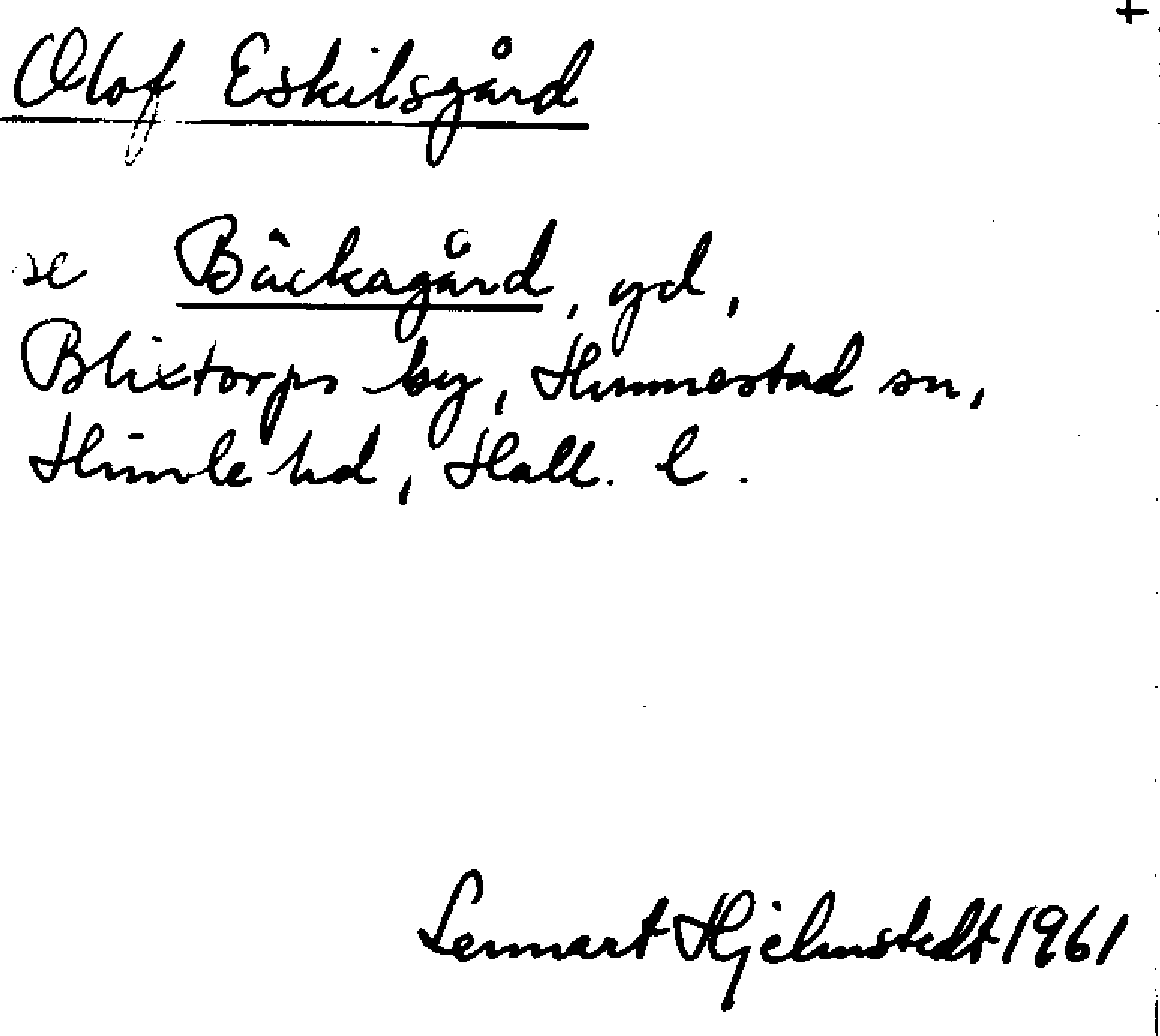 +
Olof Eskilsgård
se Bäckagård, gd,
Blixtorps by, Hunnestad sn,
Himle hd, Hall. l.
Lennart Hjelmstedt 1961